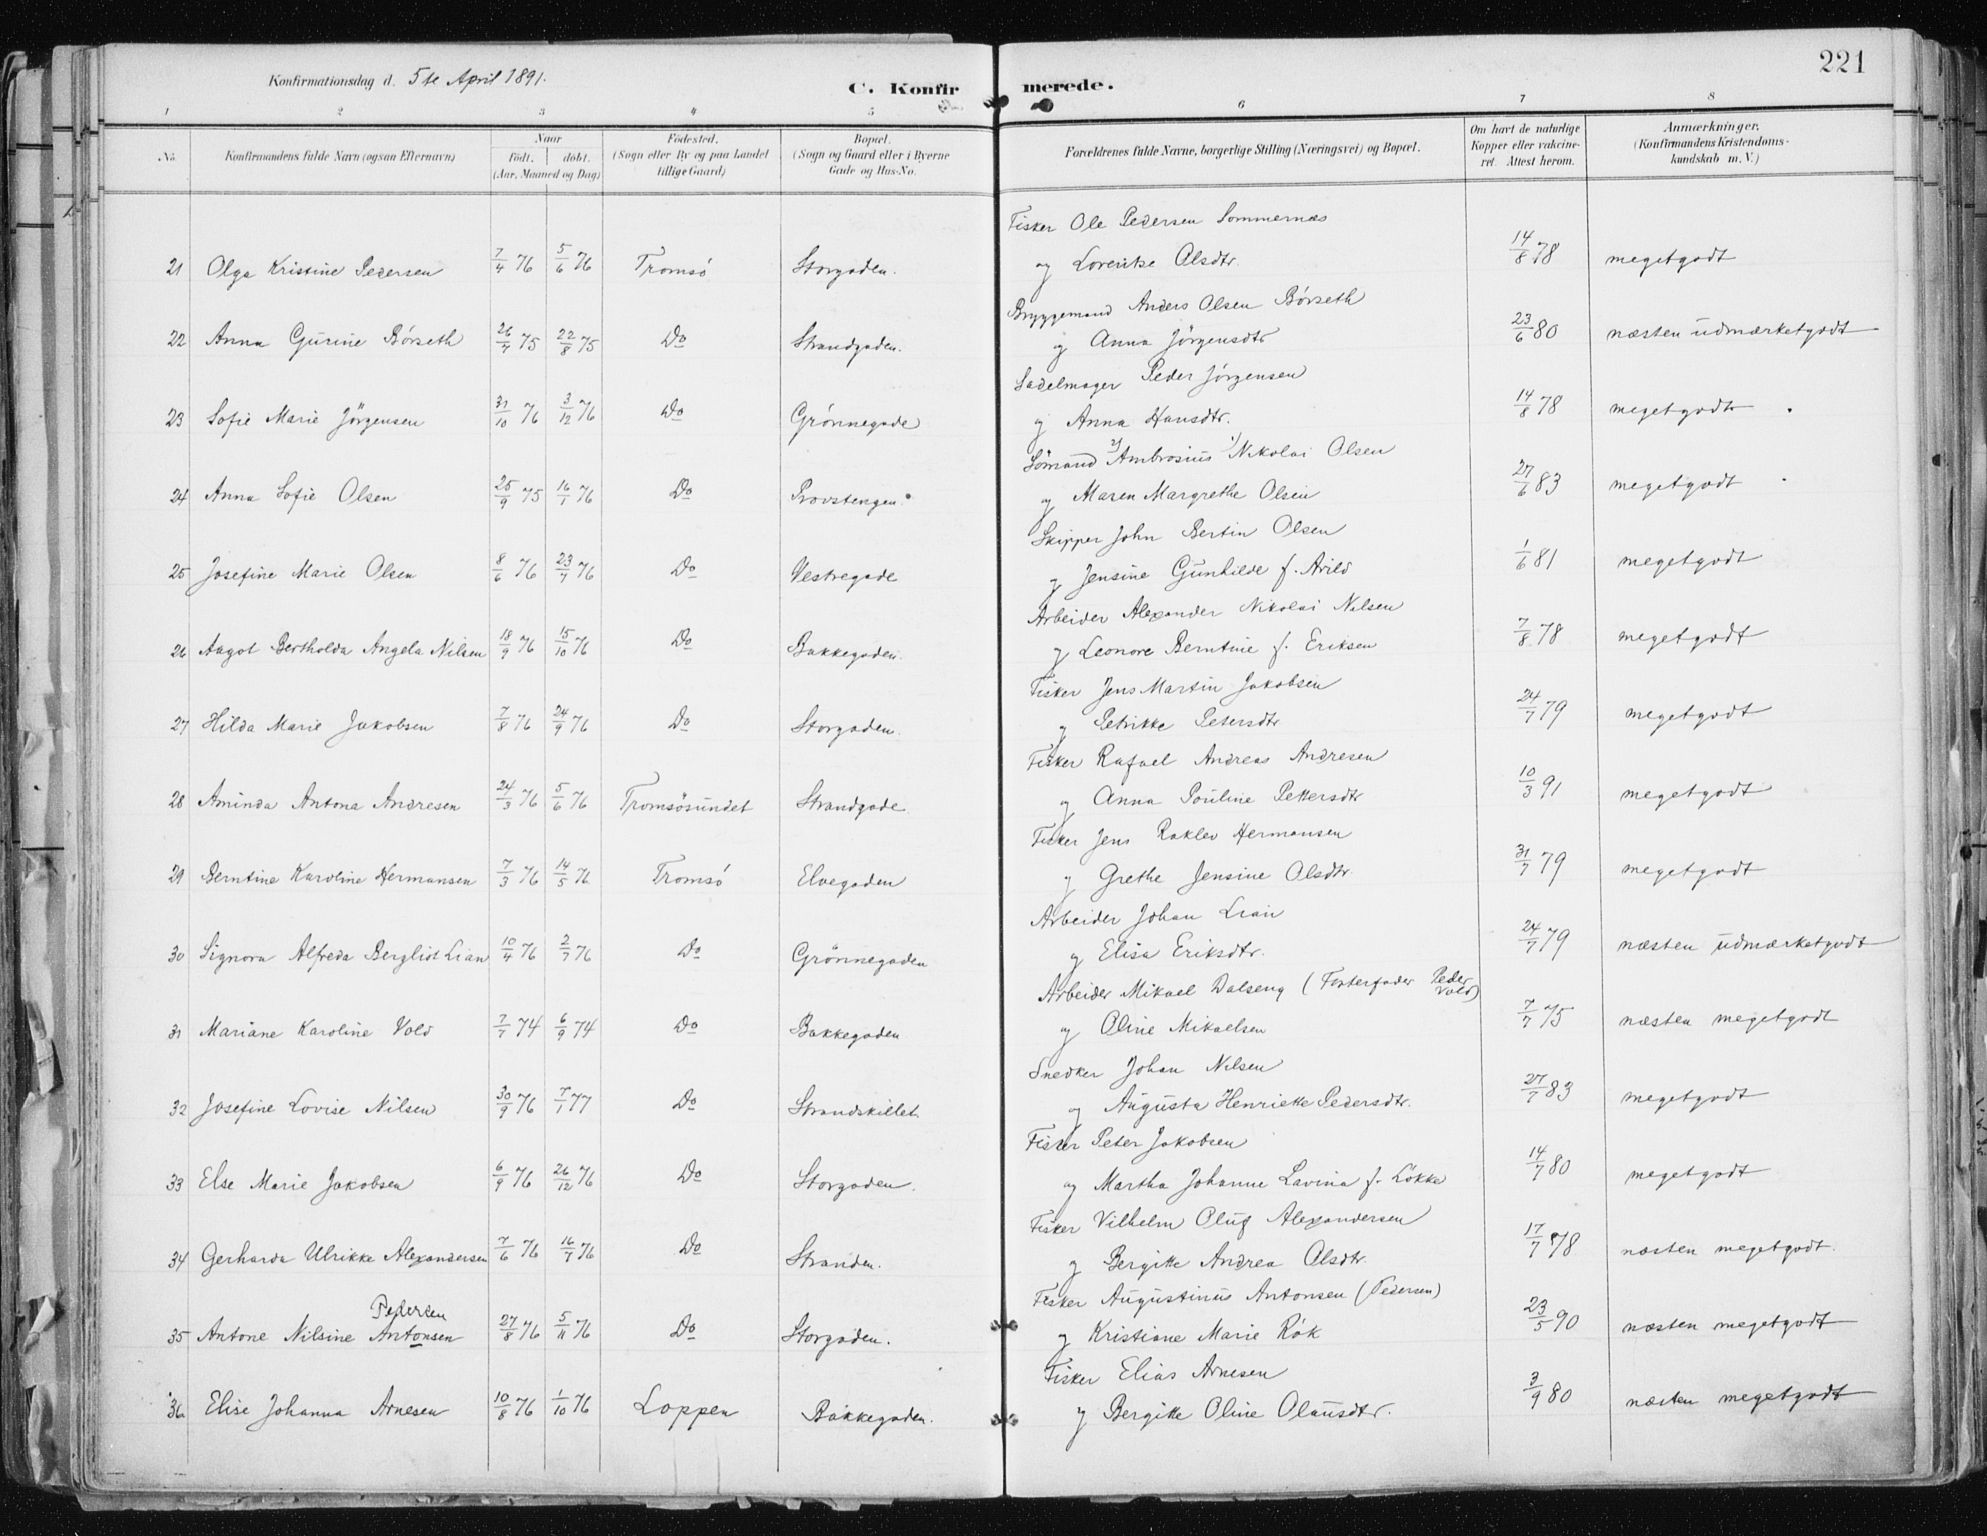 221
Konfirmationsdag d. 5te April 1891.
C. Konfirmerede.
1 2 3 4 5 6 7 8
No. Konfirmandens fulde Navn (ogsaa Efternavn) Naar født. døbt. (Aar, Maaned og Dag) Fødested. (Sogn eller By og paa Landet tillige Gaard) Bopæl. (Sogn og Gaard eller i Byerne Gade og Hus-No. Forældrenes fulde Navne, borgerlige Stilling (Næringsvei) og Bopæl. Om havt de naturlige Kopper eller vakcineret. Attest herom. Anmærkninger. (Konfirmandens Kristendomskundskab m. V.)
Fisker Ole Pedersen Sommernæs
21 Olga Kristine Pedersen 7/4 76 5/6 76 Tromsö Storgaden. og Lorentse Olsdtr. 14/8 78 megetgodt
Bryggemand Anders Olsen Börseth
22 Anna Gurine Börseth 26/7 75 22/8 75 Do Strandgaden. og Anna Jörgensdtr 23/6 80 næsten udmærketgodt
Sadelmager Peder Jörgensen
23 Sofie Marie Jörgensen 31/10 76 3/12 76 Do Grönnegade og Anna Hansdtr. 14/8 78 megetgodt
Sömand 2) Ambrosius 1) Nikolai Olsen
24 Anna Sofie Olsen 25/9 75 16/1 76 Do Provstengen. og Maren Margrethe Olsen 27/6 83 megetgodt
Skipper John Bertin Olsen
25 Josefine Marie Olsen 8/6 76 23/7 76 Do Vestregade og Jensine Gunhilde f. Arild 1/6 81 megetgodt
Arbeider Alexander Nikolai Nilsen
26 Aagot Bertholda Angela Nilsen 18/9 76 15/10 76 Do Bakkegaden. og Leonore Berntine f. Eriksen 7/8 78 megetgodt
Fisker Jens Martin Jakobsen
27 Hilda Marie Jakobsen 7/8 76 24/9 76 Do Storgaden. og Petrikke Petersdtr 24/7 79 megetgodt
Fisker Rafael Andreas Andresen
28 Aminda Antona Andresen 24/3 76 5/6 76 Tromsösundet Strandgade og Anna Pouline Pettersdtr 10/3 91 megetgodt
Fisker Jens Raklev Hermansen
29 Berntine Karoline Hermansen 7/3 76 14/5 76 Tromsö Elvegaden og Grethe Jensine Olsdtr. 31/7 79 megetgodt
Arbeider Johan Lian
30 Signora Alfreda Bergliot Lian 10/4 76 2/7 76 Do Grönnegaden og Elisa Eriksdtr. 24/7 79 næsten udmærketgodt
Arbeider Mikael Dalseng (Fosterfader Peder Vold)
31 Mariane Karoline Vold 7/7 74 6/9 74 Do Bakkegaden og Oline Mikaelsen 7/7 75 næsten megetgodt
Snedker Johan Nilsen
32 Josefine Lovise Nilsen 30/9 76 7/1 77 Do Strandskillet. og Augusta Henriette Pedersdtr. 27/7 83 megetgodt
Fisker Peter Jakobsen
33 Else Marie Jakobsen 6/9 76 26/12 76 Do Storgaden. og Martha Johanne Lavina f. Lökke 14/7 80 megetgodt
Fisker Vilhelm Oluf Alexandersen
34 Gerharda Ulrikke Alexandersen 7/6 76 16/7 76 Do Stranden. og Bergitte Andrea Olsdtr. 17/7 78 næsten megetgodt.
Fisker Augustinus Antonsen (Pedersen)
Pedersen
35 Antone Nilsine Antonsen 27/8 76 5/11 76 Do Storgaden. og Kristiane Marie Rök 23/5 90 næsten megetgodt
Fisker Elias Arnesen
36 Elise Johanna Arnesen 10/8 76 1/10 76 Loppen Bakkegaden. og Bergitte Oline Olausdtr. 3/9 80 næsten megetgodt